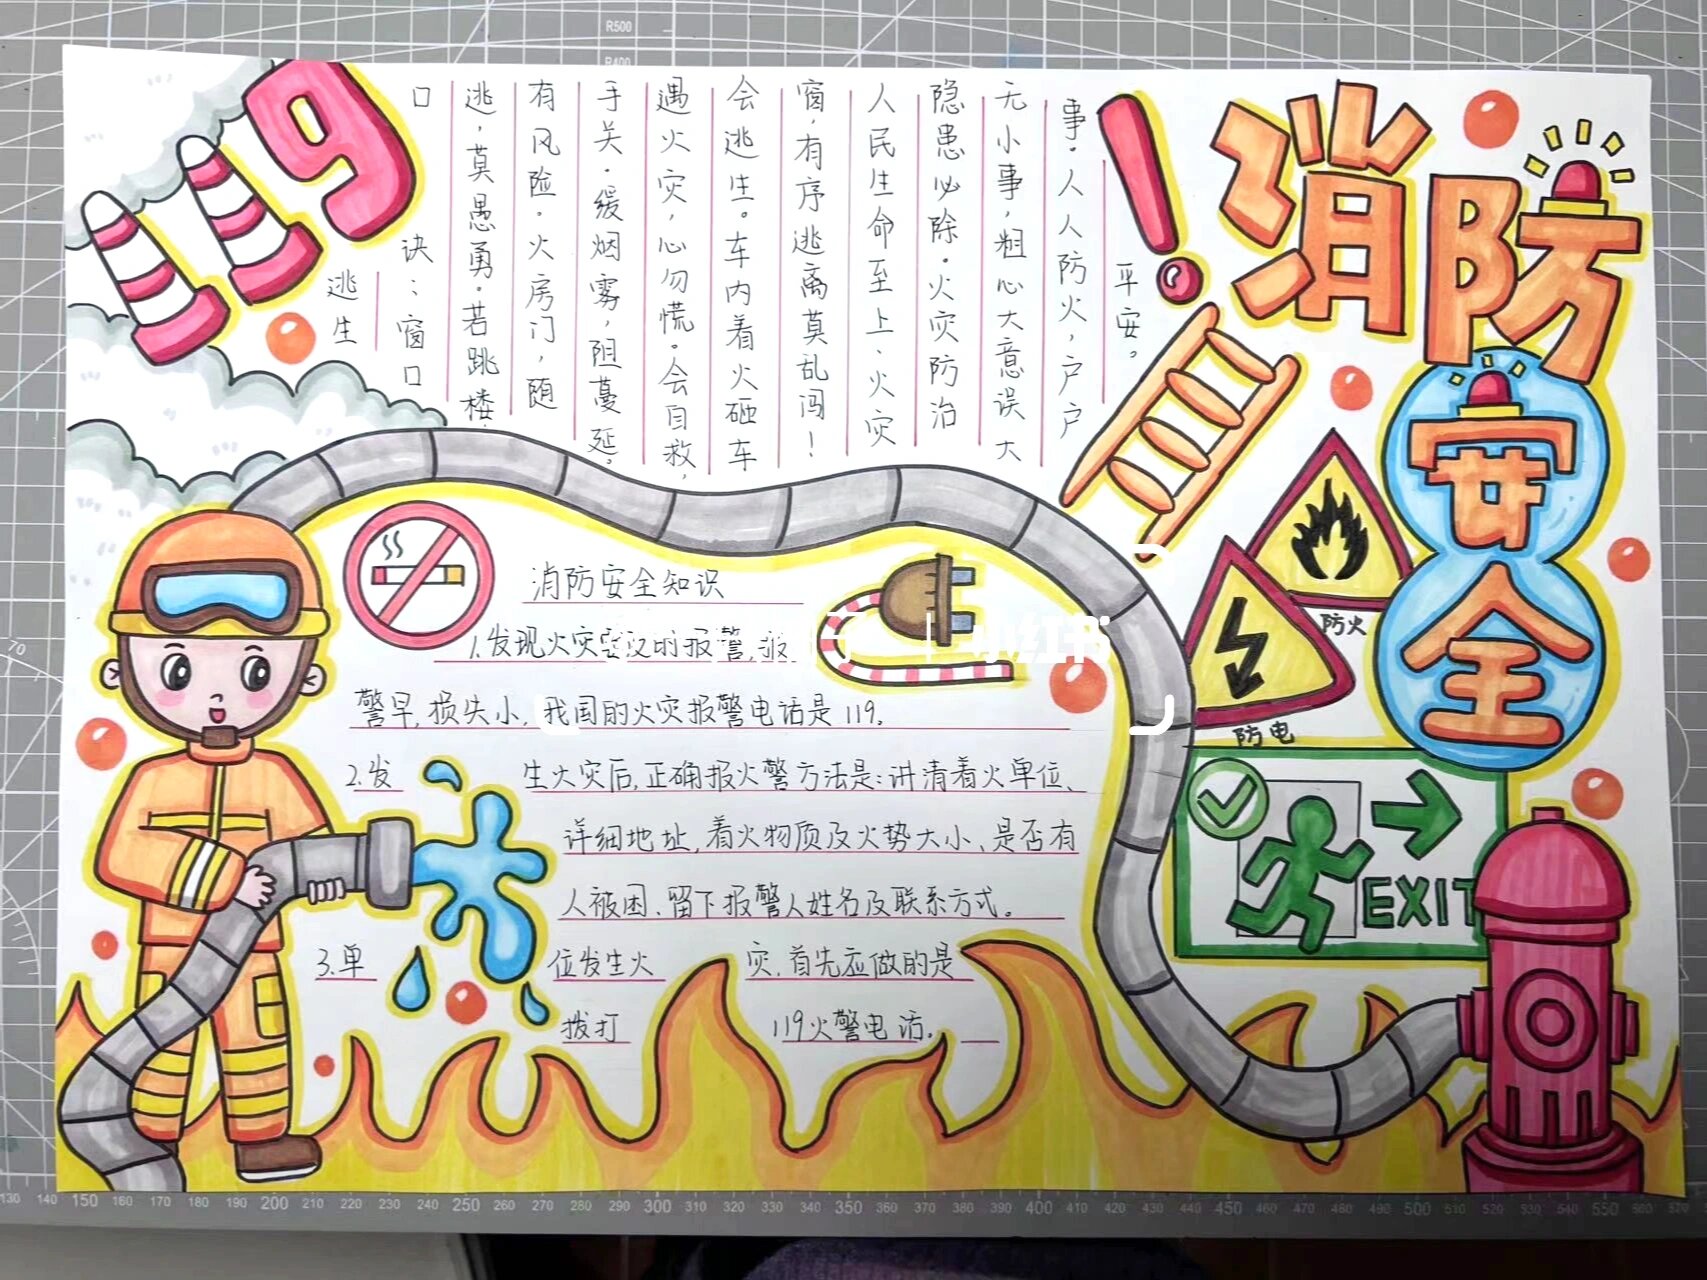 119
消防
安全
逃生
口 诀：窗口
逃，莫愚勇。若跳楼，
有风险。火房门，随
手关。缓烟雾，阻蔓延。
遇火灾，心勿慌。会自救，
会逃生。车内着火砸车
窗，有序逃离莫乱闯！
人民生命至上、火灾
隐患必除。火灾防治
无小事，粗心大意误大
事。人人防火，户户
平安。
消防安全知识
1.发现火灾及时报警,报
小红书
警早,损失小,我国的火灾报警电话是119。
2.发 生火灾后,正确报火警方法是:讲清着火单位、
详细地址,着火物质及火势大小、是否有
人被困、留下报警人姓名及联系方式。
3.单 位发生火 灾,首先应做的是
拨打 119火警电话。
防火
防电
EXIT
R500
R400
70
130 140 150 160 170 180 190 200 210 220 230 240 250 260 270 280 290 300 310 320 330 340 350 360 370 380 390 400 410 420 430 440 450 460 470 480 490 500 510 520 530 540 550 560